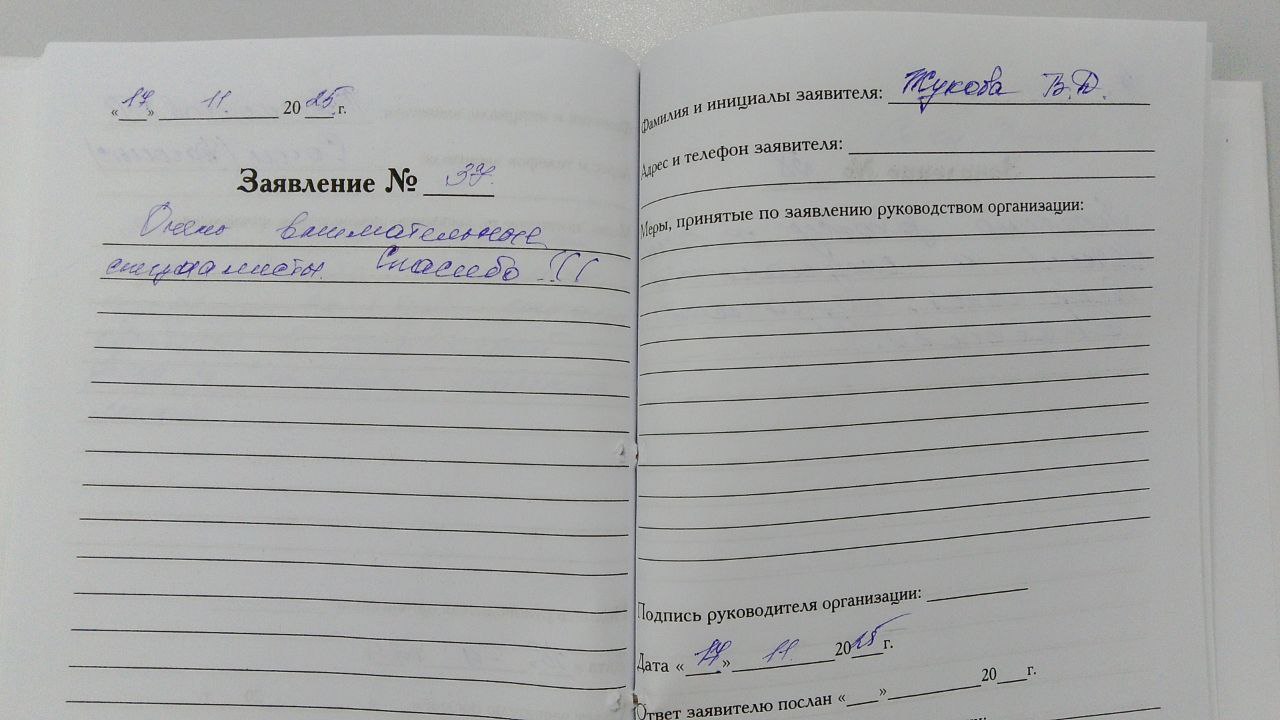 «17» 11. 2025 г.
Заявление № 37.
Очень внимательные
специалисты. Спасибо !!!
Фамилия и инициалы заявителя: Жукова В.Д.
Адрес и телефон заявителя:
Меры, принятые по заявлению руководством организации:
Подпись руководителя организации:
Дата «17» 11. 2025 г.
Ответ заявителю послан «___» 20___ г.